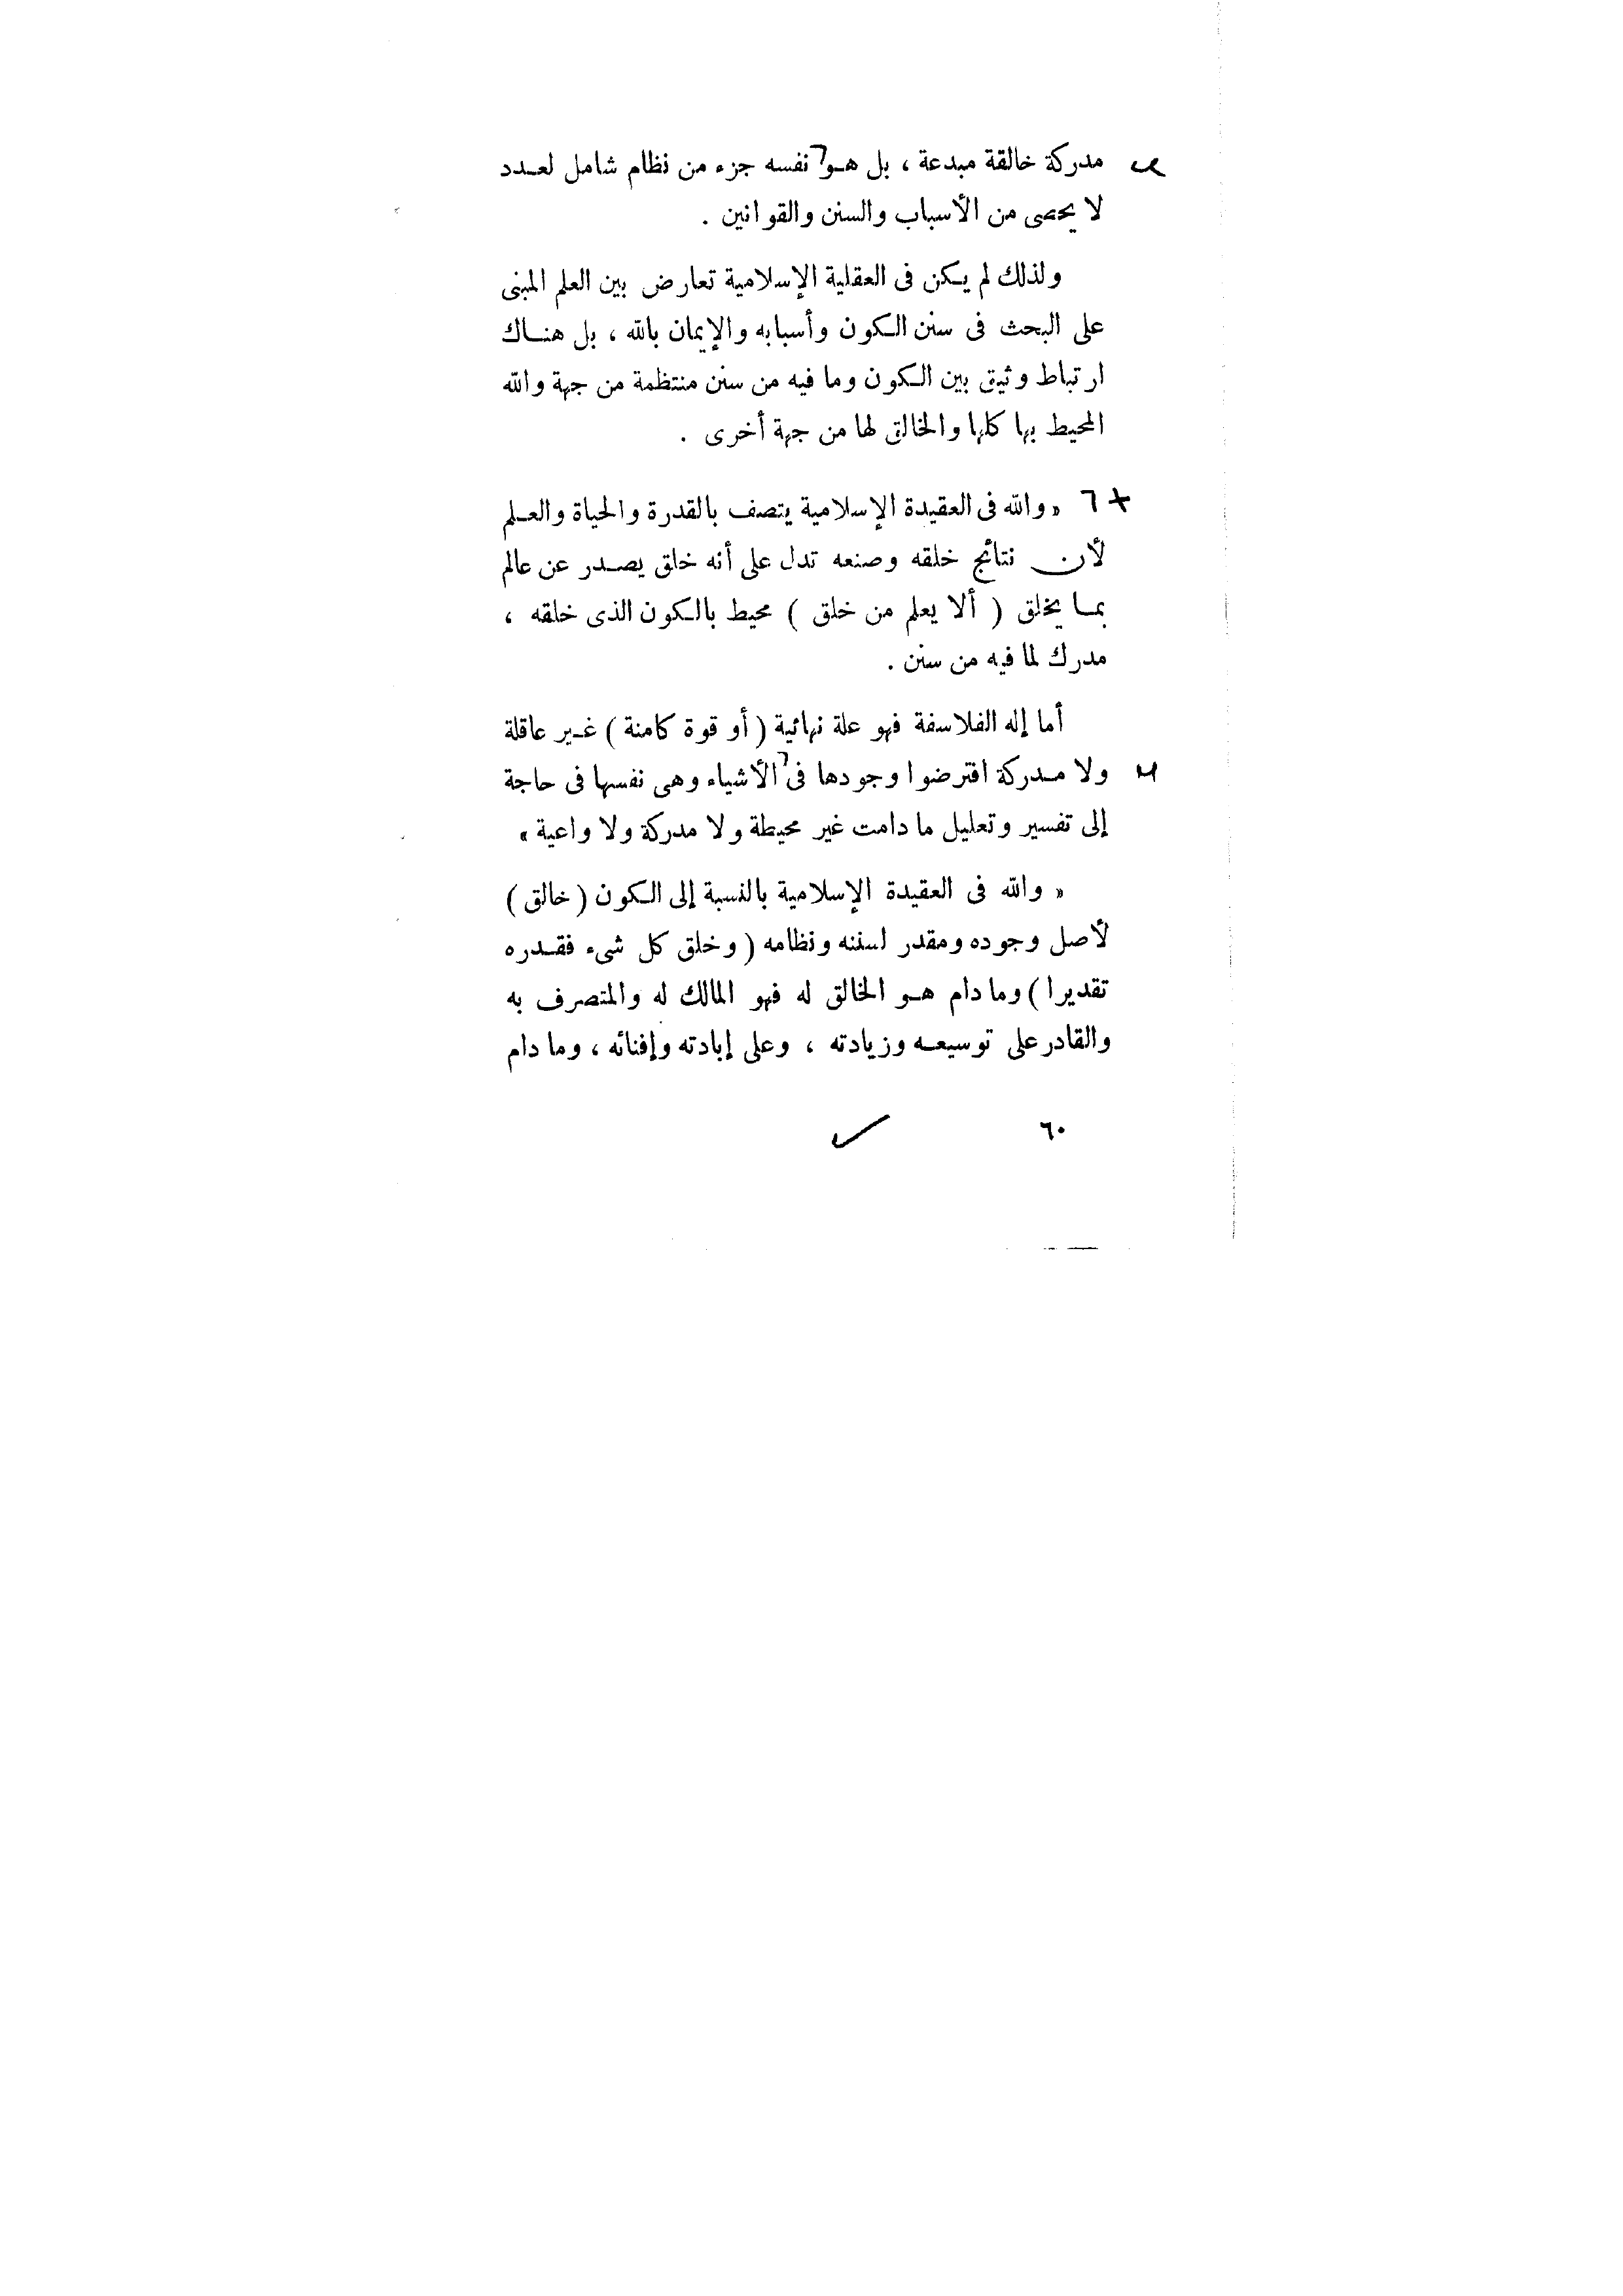 مدركة خالقة مبدعة ، بل هـو نفسه جزء من نظام شامل لعـدد
لا يحصى من الأسباب والسنن والقوانين .
ولذلك لم يكن فى العقلية الإسلامية تعارض بين العلم المبنى
على البحث فى سنن الكون وأسبابه والإيمان بالله ، بل هنـاك
ارتباط وثيق بين الكون وما فيه من سنن منتظمة من جهة والله
المحيط بها كلها والخالق لها من جهة أخرى .
٦ « والله فى العقيدة الإسلامية يتصف بالقدرة والحياة والعـلم
لأن نتائج خلقه وصنعه تدل على أنه خلق يصـدر عن عالم
بمـا يخلق ( ألا يعلم من خلق ) محيط بالكون الذى خلقه ،
مدرك لما فيه من سنن .
أما إله الفلاسفة فهو علة نهائية ( أو قوة كامنة ) غـير عاقلة
ولا مـدركة افترضوا وجودها فى الأشياء وهى نفسها فى حاجة
إلى تفسير وتعليل ما دامت غير محيطة ولا مدركة ولا واعية »
« والله فى العقيدة الإسلامية بالنسبة إلى الكون ( خالق )
لأصل وجوده ومقدر لسننه ونظامه ( وخلق كل شىء فقـدره
تقديرا ) وما دام هـو الخالق له فهو المالك له والمتصرف به
والقادر على توسيعـه وزيادته ، وعلى إبادته وإفنائه ، وما دام
٦٠